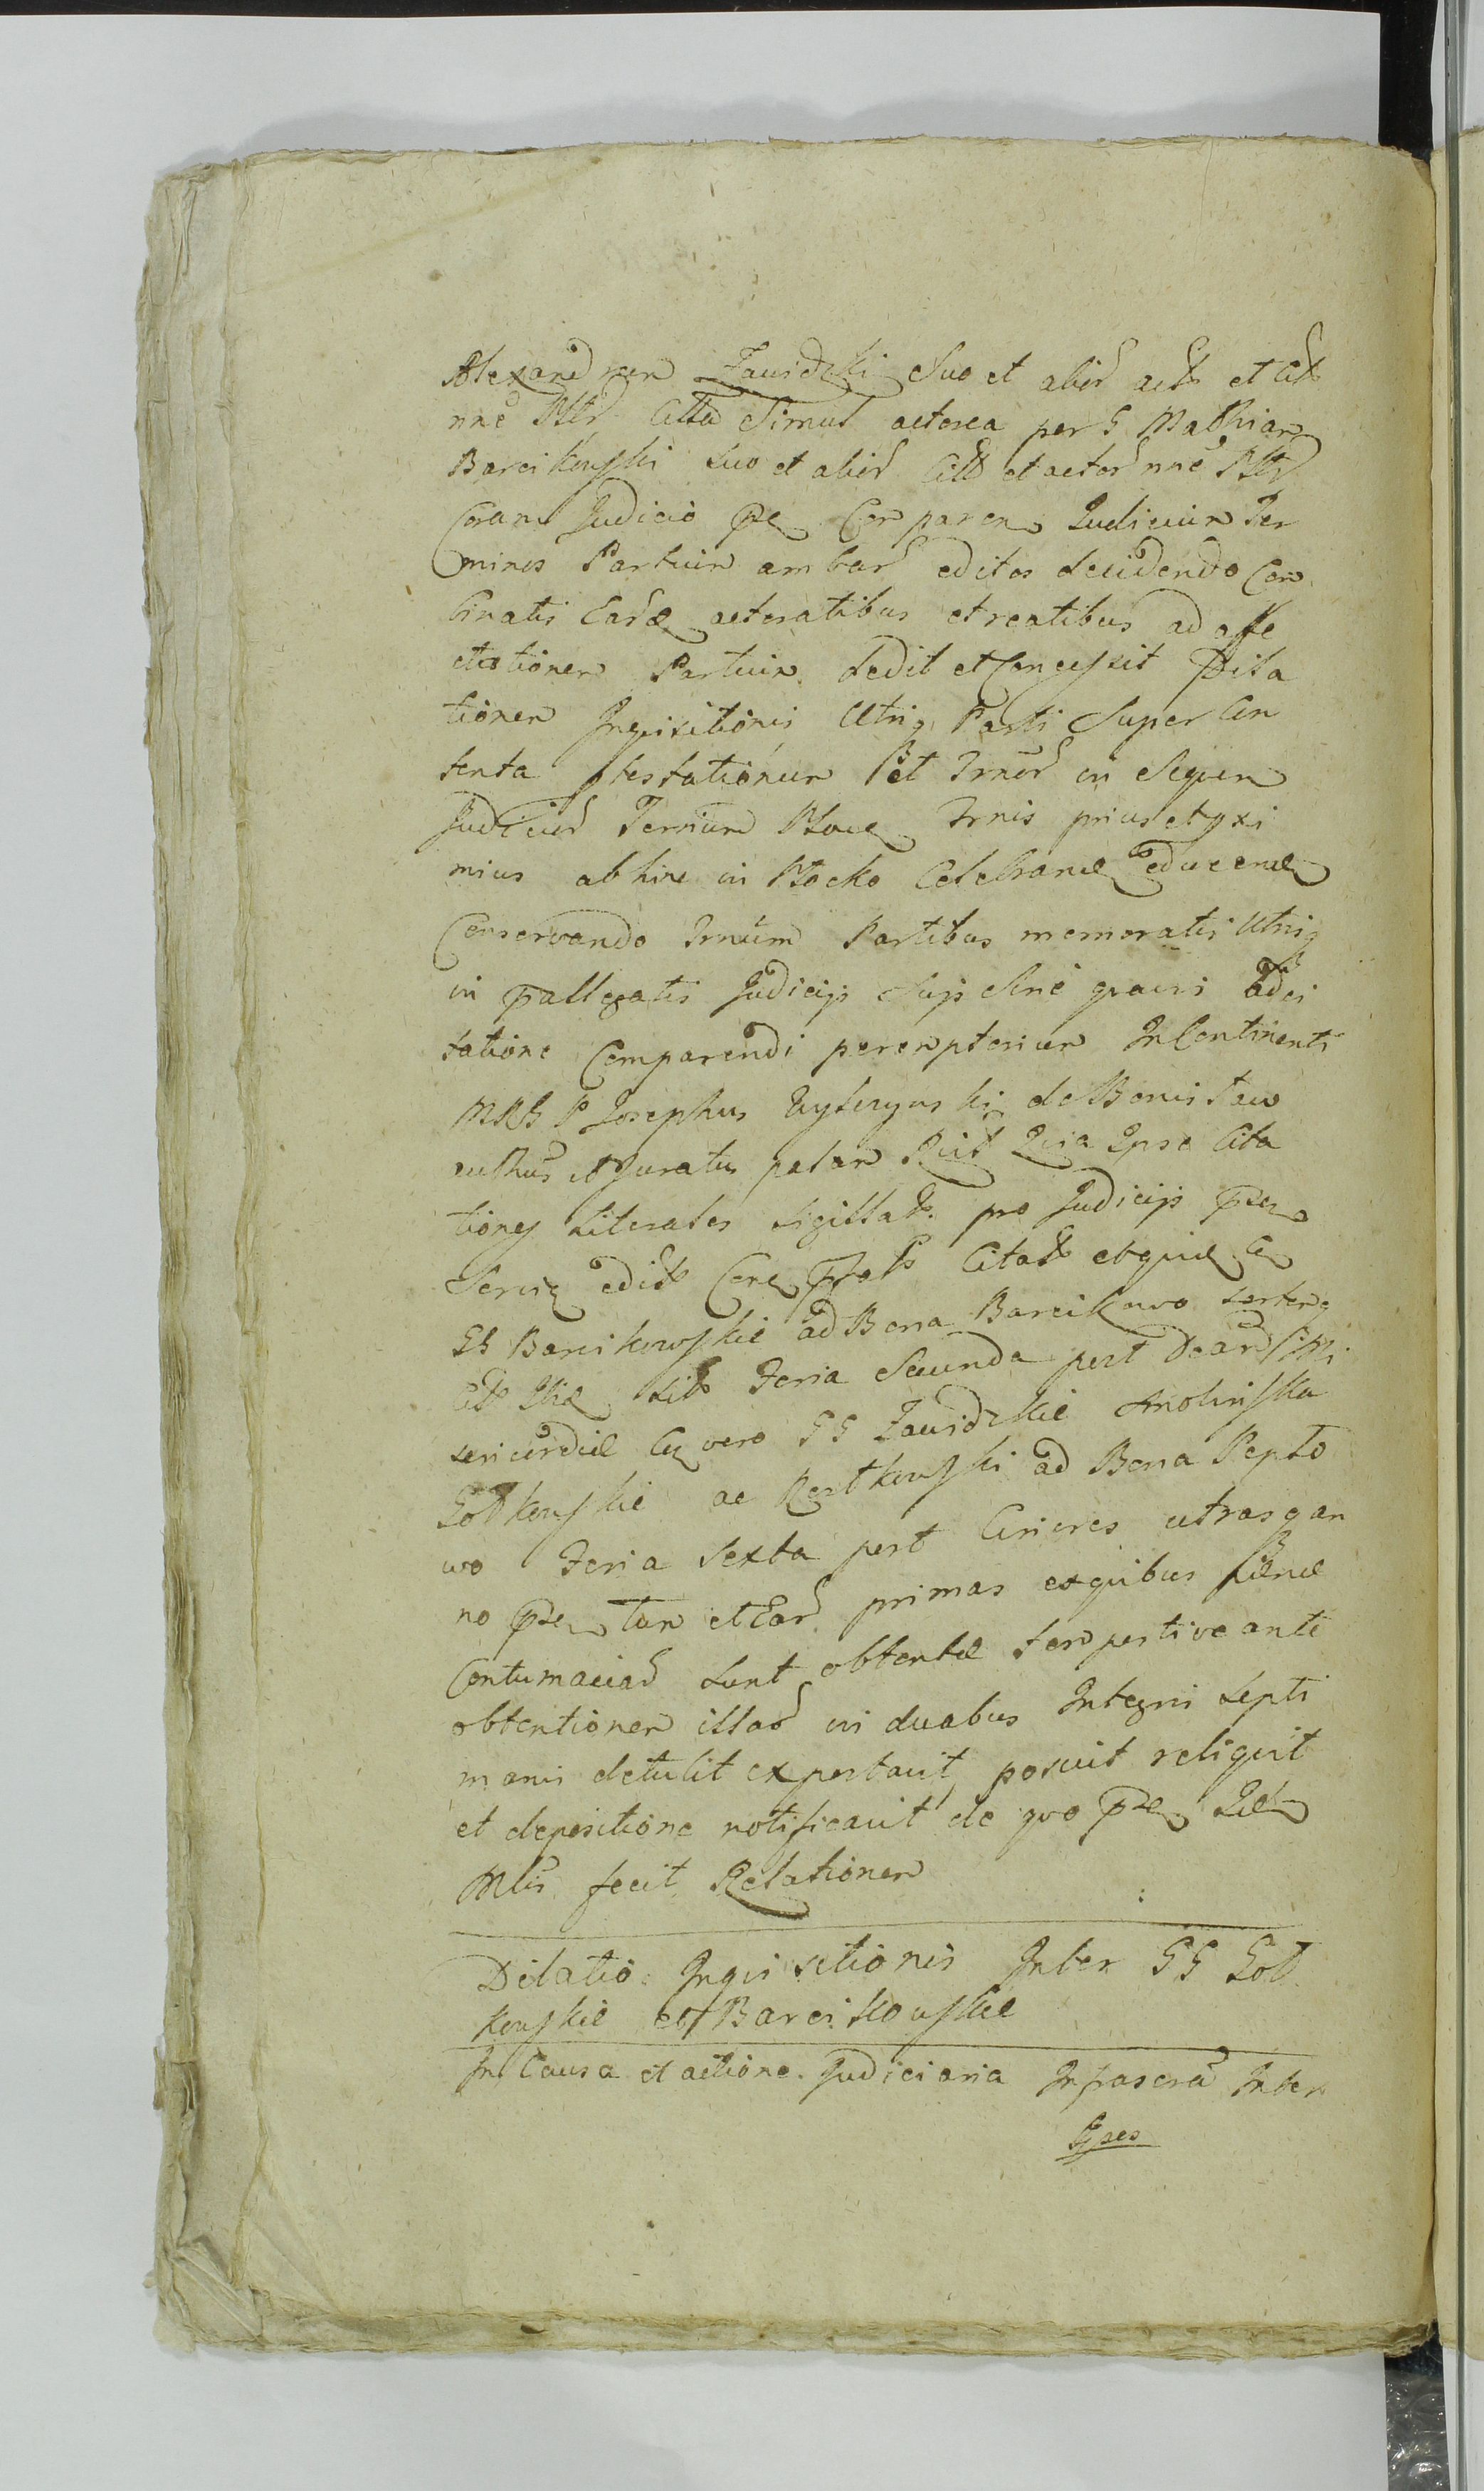 Alexandrum Zawidzki Suo et alior act et Citt
nne Pltr Citta Simul actorea per G Mathiam
Barcikowski Suo et alior Citt et actor nne Pltr
Coram Judicio pze Comparen Judicium Ter
minos Partium ambar editos decidendo Con
binatis Earde actoratibus et reatibus ad affe
ctationem Partium dedit et Concessit Dila
tionem Inquisitionis Utriq Parti Super Con
tenta ptestationum et Trnor in Sequen
Judicior Terrium Ploce Trnis prius et pxi
mius ab hinc in Płocko Celebrand educend
Conservando Trnum Partibus memoratis Utrisq
in pallegatis Judicijs Sujs Sine graviri adci
tatione Comparendi peremptorium In Continenti
MRG P Josephus Wyszynski de Bonis Taw
ruthus et Juratus palam Rcit Quia Ipse Cita
tiones Literales Sigillat. pro Judicijs pze
Servie edit Cone ptat Citat et quid Ce
GG Barcikowskie ad Bona Barcikowo
Citt Feria Secunda post Dcam Mi
sericordiæ Ce vero GG Zawidzkie Smolinska
Gołkowskie ac Kostkowski ad Bona Septo
wo Feria Sexta post Cineres utrasq an
no pze tan et Ear primas ex quibus
Contumaciar Sunt obtentæ tempestive ante
obtentionem illar in duabus Integris Septi
manis detulit exportavit posuit reliquit
et depositione notificavit de quo pze Idem
Mlis fecit Relationem
Dilatio Inquisitionis Inter GG Goł
kowskie et Barcikowskie
In Causa et actione Judiciaria Infrascra Inter
Ipsos